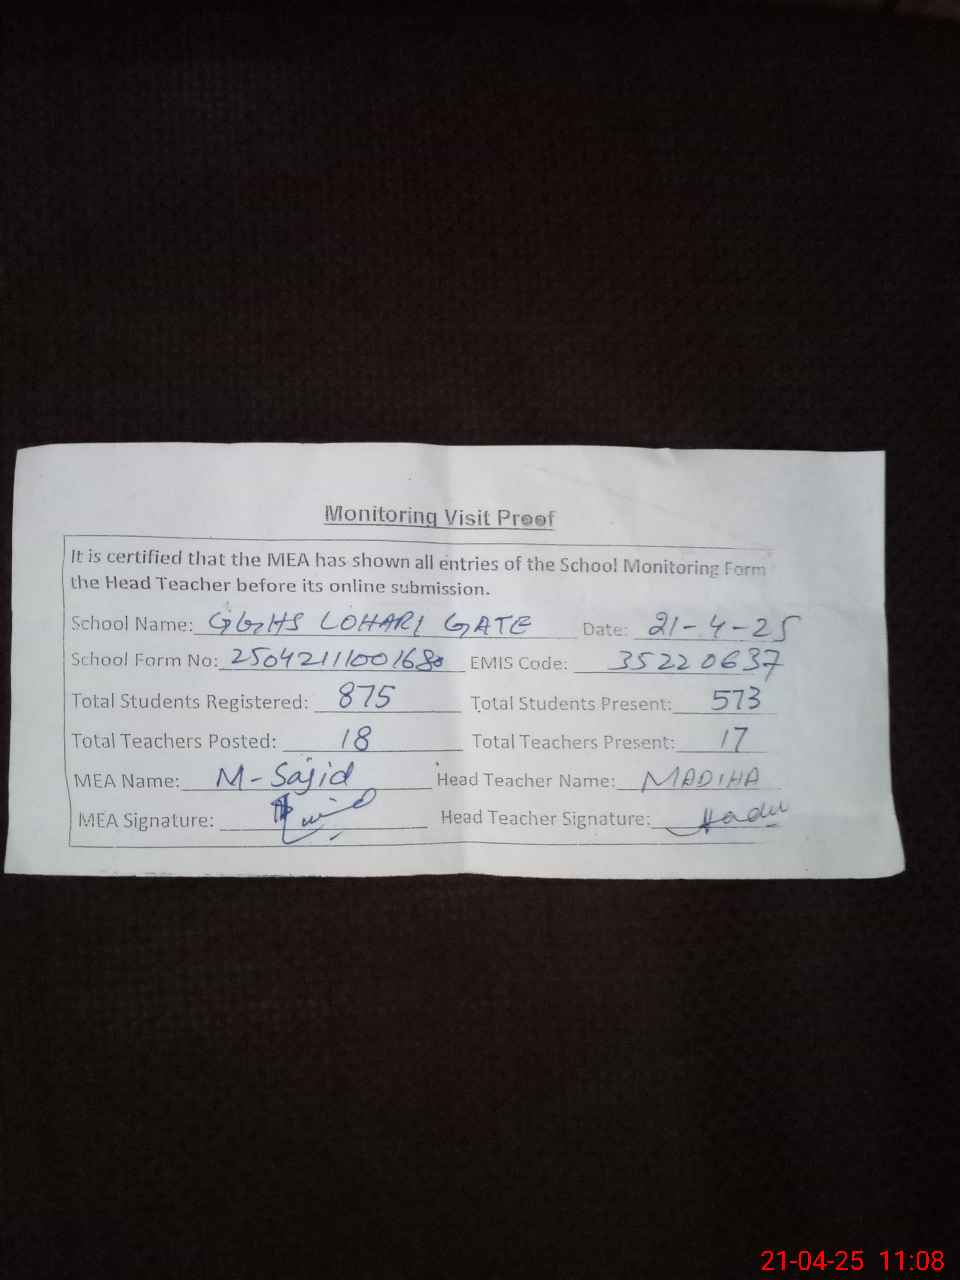 Monitoring Visit Proof
It is certified that the MEA has shown all entries of the School Monitoring Form
the Head Teacher before its online submission.
School Name: GGHS LOHARI GATE Date: 21-4-25
School Form No: 25042111001680 EMIS Code: 35220637
Total Students Registered: 875 Total Students Present: 573
Total Teachers Posted: 18 Total Teachers Present: 17
MEA Name: M-Sajid Head Teacher Name: MADIHA
MEA Signature: Head Teacher Signature:
21-04-25 11:08